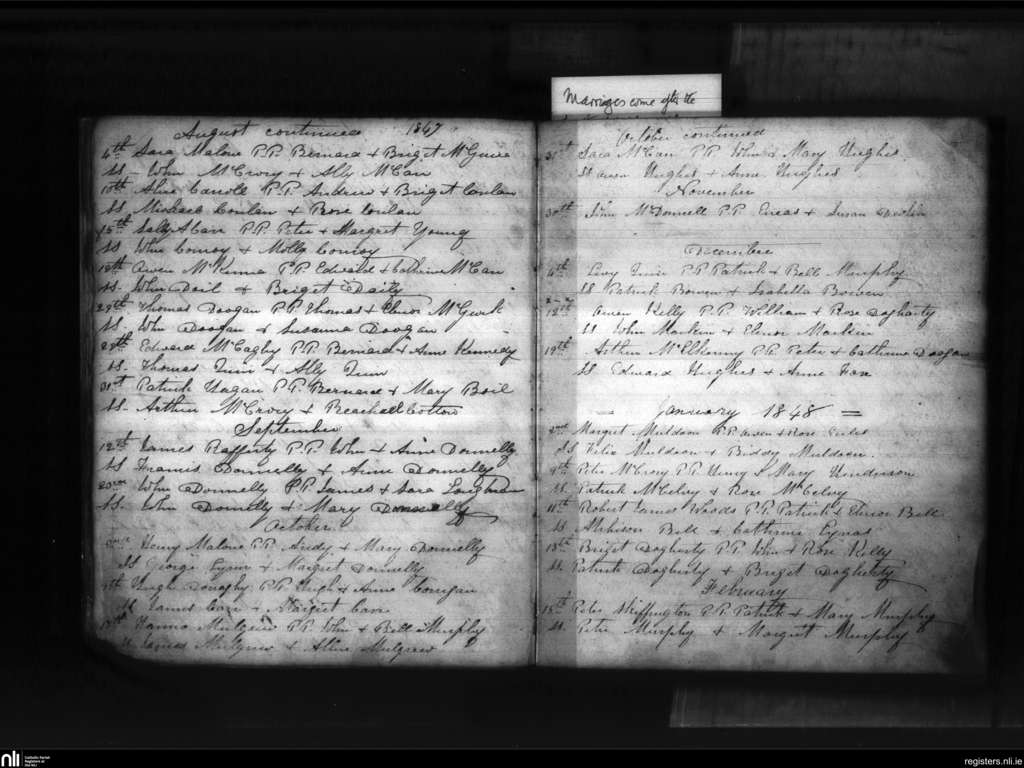 Marriages come after the
August continued 1847
6th Sara Malone P.P. Bernard & Briget McGuire
SS - John McCrory & Ally McCan
10th Alice Carroll P.P. Andrew & Briget Conlan
SS Michael Conlan & Rose Conlan
15th Sally A Carr P.P. Peter & Margret Young
SS John Conroy & Molly Conroy
18th Owen McKenna P.P. Edward & Catherine McCan
SS. John Devil & Briget Daily
29th Thomas Doogan P.P. Thomas & Elenor McGurk
SS. John Doogan & Susanna Doogan
29th Edward McCaghy P.P. Bernard & Anne Kennedy
SS. Thomas Quin & Ally Quin
31st Patrick Hagan P.P. Bernard & Mary Boil
SS. Arthur McCrory & Reachall Cotton
September
12th James Rafferty P.P. John & Anne Donnelly
SS Francis Donnelly & Anne Donnelly
John Donnelly P.P. James & Sara Loughran
SS. John Donnelly & Mary Donnelly
October
Henry Malone P.P. Andy & Mary Donnelly
SS George Lynn & Margret Donnelly
Hugh Donaghy P.P. Hugh & Anne Corrigan
SS James Carr & Margret Carr
Hanna Mulgrew P.P. John & Bell Murphy
SS James Mulgrew & Alice Mulgrew
October continued
31st Sara McCan P.P. John & Mary Hughes
SS Owen Hughes & Anne Hughes
November
30th John McDonnell P.P. Eneas & Susan Devlin
December
Lucy Quin P.P. Patrick & Bell Murphy
SS Patrick Bowen & Isabella Bowen
12th Owen Kelly P.P. William & Rose Dogharty
SS John Mackin & Elenor Mackin
19th Arthur McElhenny P.P. Peter & Catherine Doogan
SS Edward Hughes & Anne Fox
January 1848
2nd Margret Muldoon P.P. Owen & Rose
SS Felix Muldoon & Biddy Muldoon
9th Peter McCrory P.P. Henry & Mary Henderson
SS Patrick McCelvy & Rose McCelvy
11th Robert James Woods P.P. Patrick & Elenor Bell
SS Atchison Bell & Catherine
13th Briget Dogherty P.P. John & Rose Kelly
SS Patrick Dogherty & Briget Dogherty
February
15th Peter Skiffington P.P. Patrick & Mary Murphy
SS. Peter Murphy & Margret Murphy
nli
Catholic Parish
Registers at
the NLI
registers.nli.ie